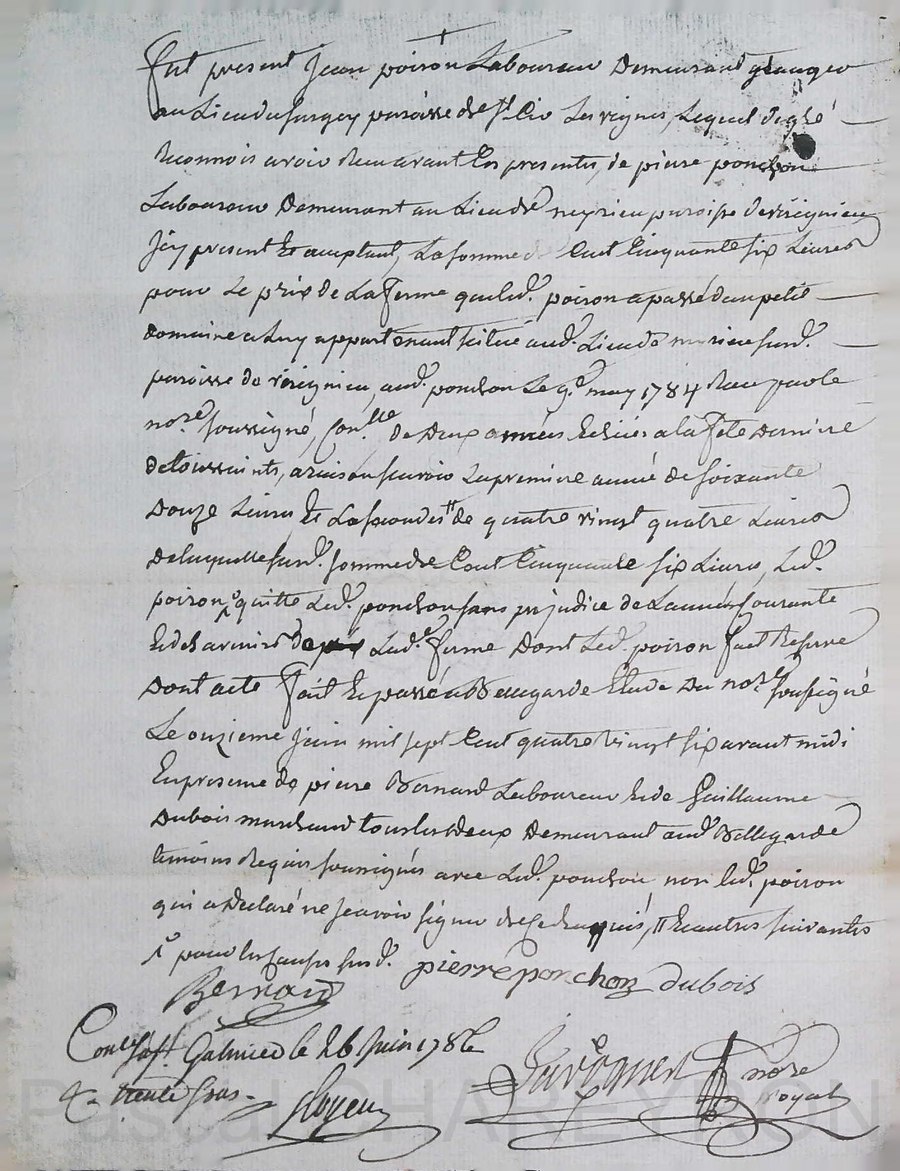 fut présent Jean poiron Laboureur Demeurant
au Lieu du paroisse de St. Les vignes, Lequel de gré
Reconnois avoir Reçu avant Les presentes, de pierre ponchon
Laboureur Demeurant au Lieu de neyrieu paroisse de
Icy présent Et acceptant, La somme de Cent Cinquante six Livres
pour Le prix de La ferme que led. poiron a passé d'un petit
Domaine a Luy appartenant scitué aud. Lieu de susd.
paroisse de aud. ponchon Le 9e. may 1784 Recu par le
nore. soussigné, De Deux années Echues a la fête Derniere
de toussaints, a raison scavoir La premiere année de soixante
Douze Livres Et La seconde de quatre vingt quatre Livres
De laquelle susd. somme de Cent Cinquante six Livres, Led.
poiron quitte Led. ponchon sans prejudice de L'année Courante
Et des avenir de Lade. ferme Dont Led. poiron fait Reserve
Dont acte fait Et passé a Bellegarde Etude Du nore. soussigné
Le onzieme juin mil sept Cent quatre vingt six avant midi
En presence de pierre Bernard Laboureur Et de Guillaume
Dubois marchand tous les deux Demeurant aud. Bellegarde
temoins Requis soussignés avec Led. ponchon, non led. poiron
qui a Declaré ne scavoir signer de Ce Enquis, Et autres suivantes
pour les causes susd. pierre ponchon dubois
Bernard
Conlé. a St. Galmier le 26 Juin 1786
Rx. trente sous
nore
royal
Pascal CHAREYRON